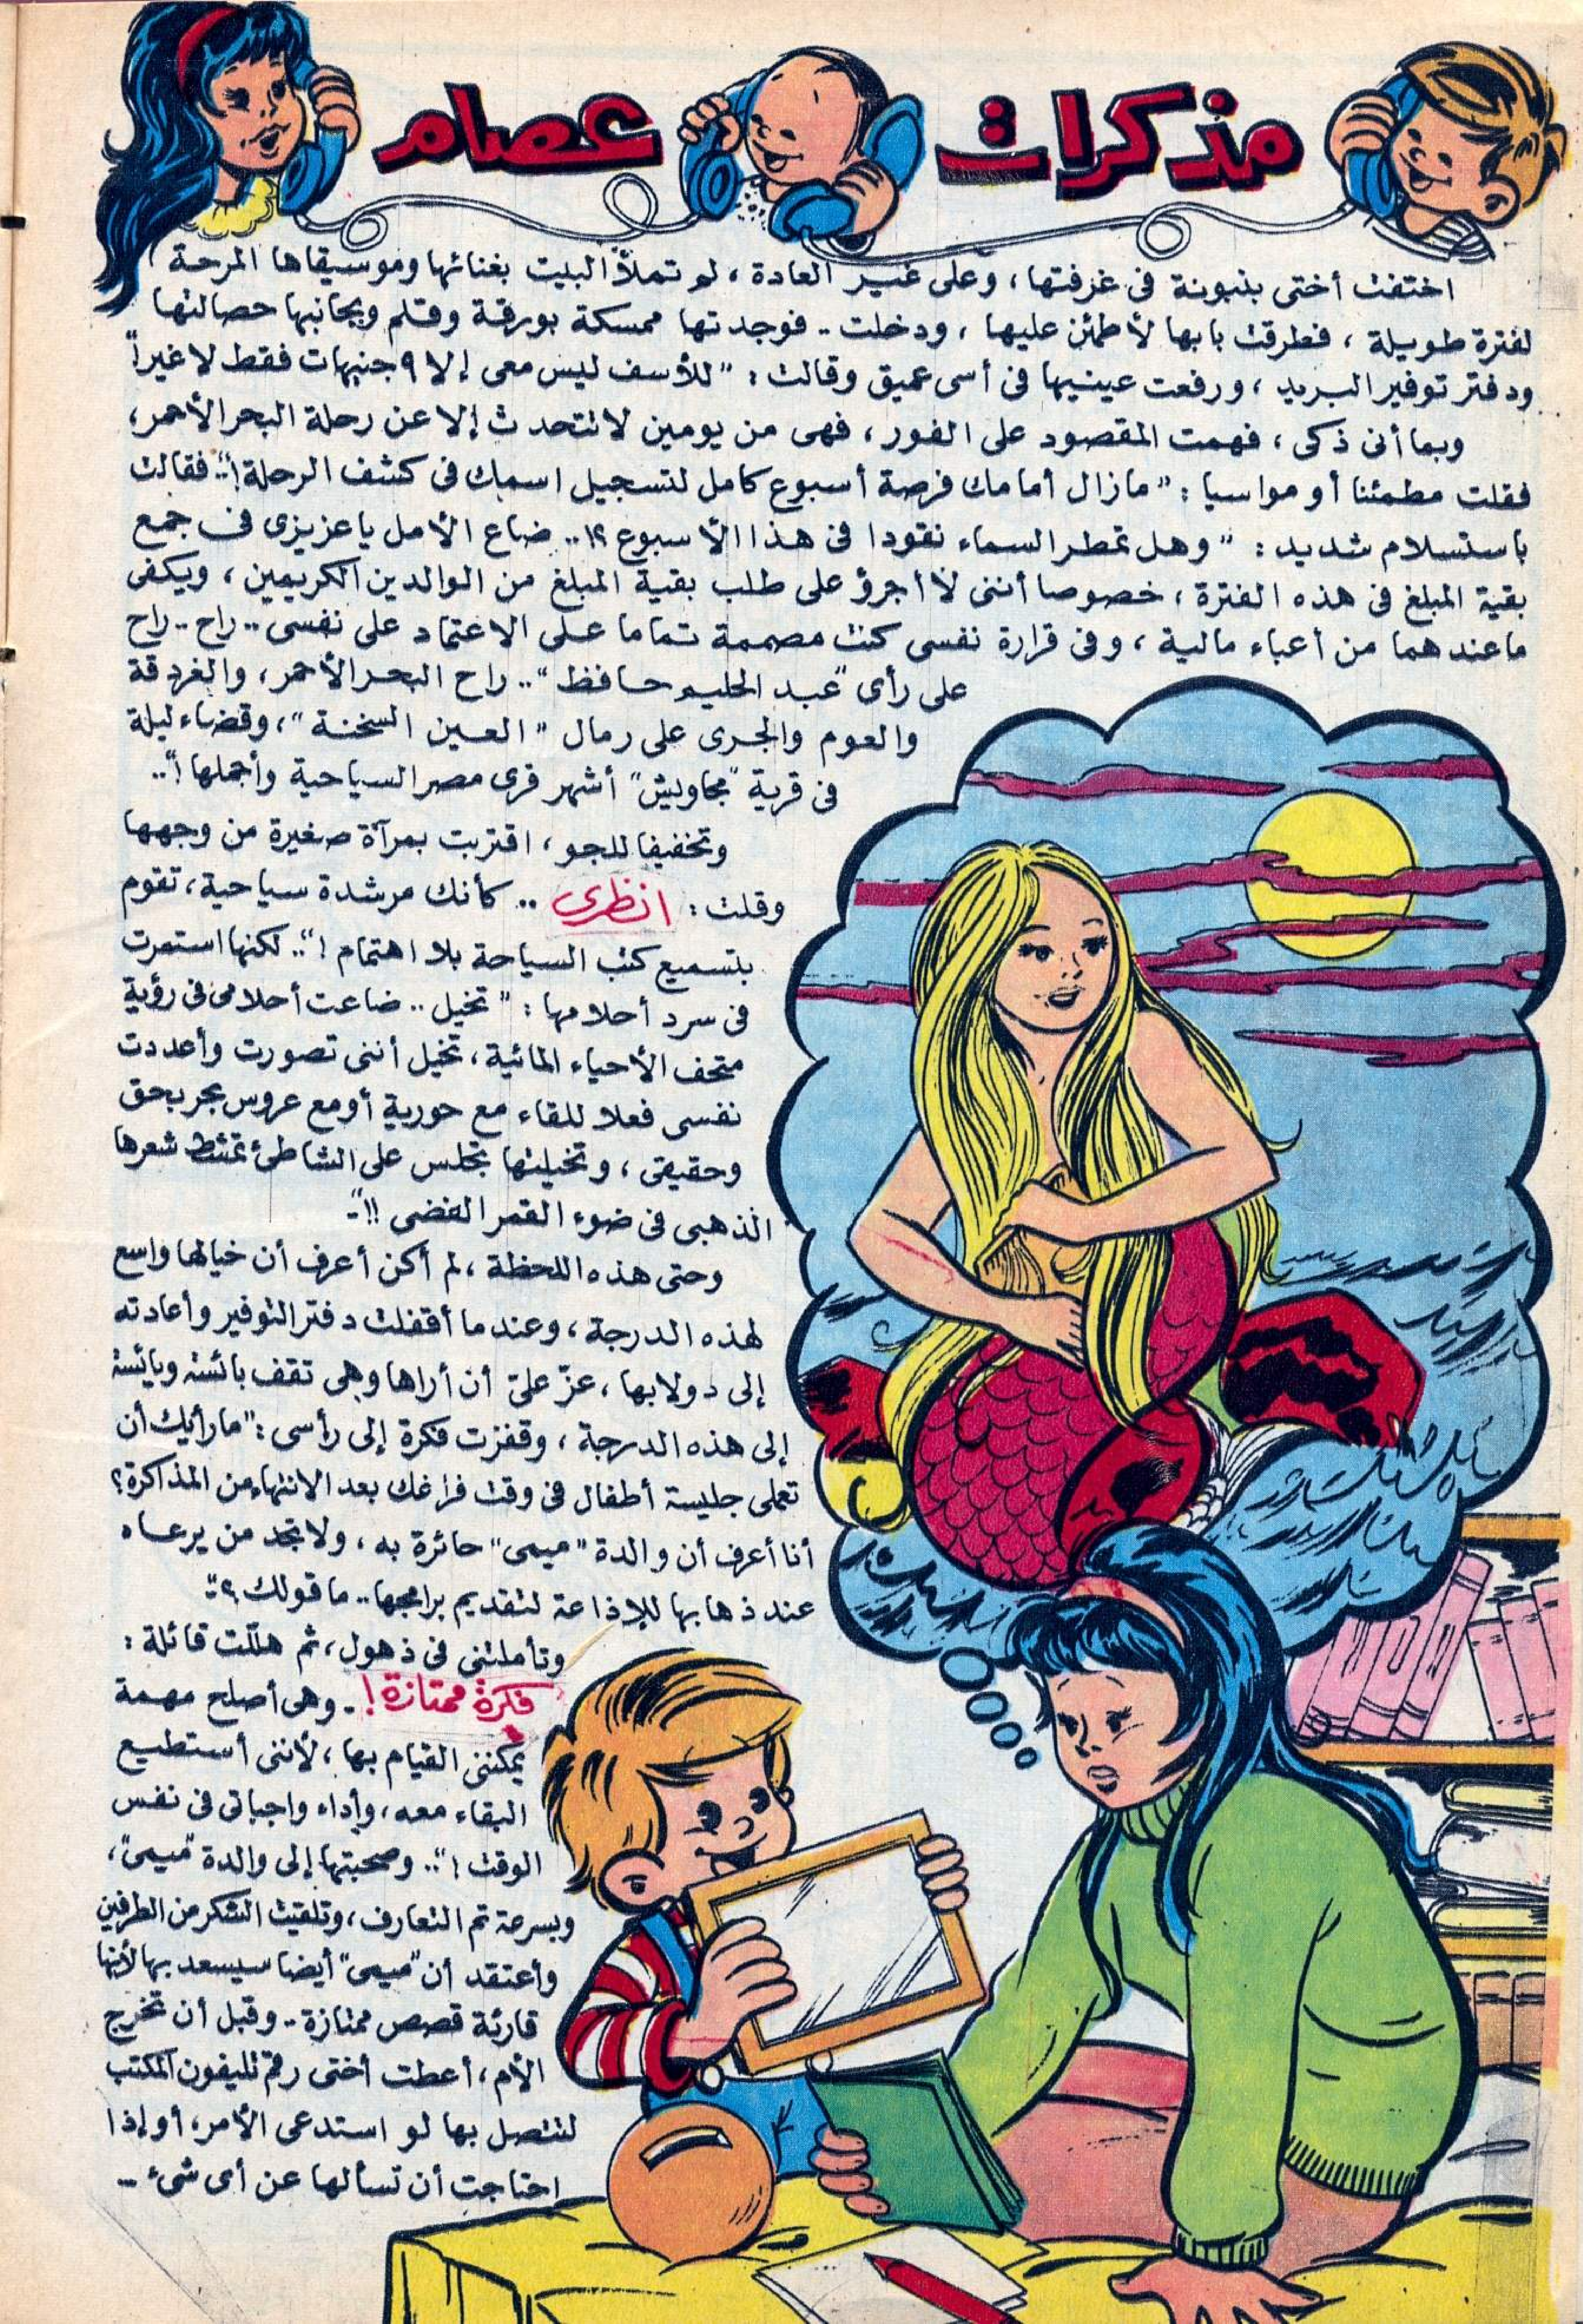 مذكرات عصام
اختفت أختى بنبونة فى غرفتها، وعلى غير العادة، لم تملأ البيت بغنائها وموسيقاها المرحة
لفترة طويلة، فطرقت بابها لأطمئن عليها، ودخلت.. فوجدتها ممسكة بورقة وقلم وبجانبها حصالتها
ودفتر توفير البريد، ورفعت عينيها فى أسى عميق وقالت: "للأسف ليس معى إلا ٩ جنيهات فقط لا غير!"
وبما أنى ذكى، فهمت المقصود على الفور، فهى من يومين لا تتحدث إلا عن رحلة البحر الأحمر،
فقلت مطمئنا أو مواسيا: "مازال أمامك فرصة أسبوع كامل لتسجيل اسمك فى كشف الرحلة!".. فقالت
باستسلام شديد: "وهل تمطر السماء نقودا فى هذا الأسبوع؟!.. ضاع الأمل ياعزيزى فى جمع
بقية المبلغ فى هذه الفترة، خصوصا أننى لا أجرؤ على طلب بقية المبلغ من الوالدين الكريمين، ويكفى
ماعندهما من أعباء مالية، وفى قرارة نفسى كنت مصممة تماما على الاعتماد على نفسى.. راح.. راح
على رأى "عبد الحليم حافظ".. راح البحر الأحمر، والغردقة
والعوم والجرى على رمال "العين السخنة"، وقضاء ليلة
فى قرية "مجاويش" أشهر قرى مصر السياحية وأجملها!"..
وتخفيفا للجو، اقتربت بمرآة صغيرة من وجهها
وقلت: انظرى.. كأنك مرشدة سياحية، تقوم
بتسميع كتب السياحة بلا اهتمام!".. لكنها استمرت
فى سرد أحلامها: "تخيل.. ضاعت أحلامى فى رؤية
متحف الأحياء المائية، تخيل أننى تصورت وأعددت
نفسى فعلا للقاء مع حورية أو مع عروس بحر بحق
وحقيقى، وتخيلتها تجلس على الشاطئ تمشط شعرها
الذهبى فى ضوء القمر الفضى!!"..
وحتى هذه اللحظة، لم أكن أعرف أن خيالها واسع
لهذه الدرجة، وعندما أقفلت دفتر التوفير وأعادته
إلى دولابها، عزّ علىّ أن أراها وهى تقف بائسة ويائسة
إلى هذه الدرجة، وقفزت فكرة إلى رأسى: "ما رأيك أن
تعملى جليسة أطفال فى وقت فراغك بعد الانتهاء من المذاكرة؟
أنا أعرف أن والدة "ميمى" حائرة به، ولا تجد من يرعاه
عند ذهابها للإذاعة لتقديم برامجها.. ما قولك؟"..
وتأملتنى فى ذهول، ثم هللت قائلة:
فكرة ممتازة!.. وهى أصلح مهمة
يمكننى القيام بها، لأننى أستطيع
البقاء معه، وأداء واجباتى فى نفس
الوقت!".. وصحبتها إلى والدة "ميمى"،
وبسرعة تم التعارف، وتلقيت الشكر من الطرفين
وأعتقد أن "ميمى" أيضا سيسعد بها لأنها
قارئة قصص ممتازة.. وقبل أن تخرج
الأم، أعطت أختى رقم تليفون المكتب
لتتصل بها لو استدعى الأمر، أو إذا
احتاجت أن تسألها عن أى شىء..